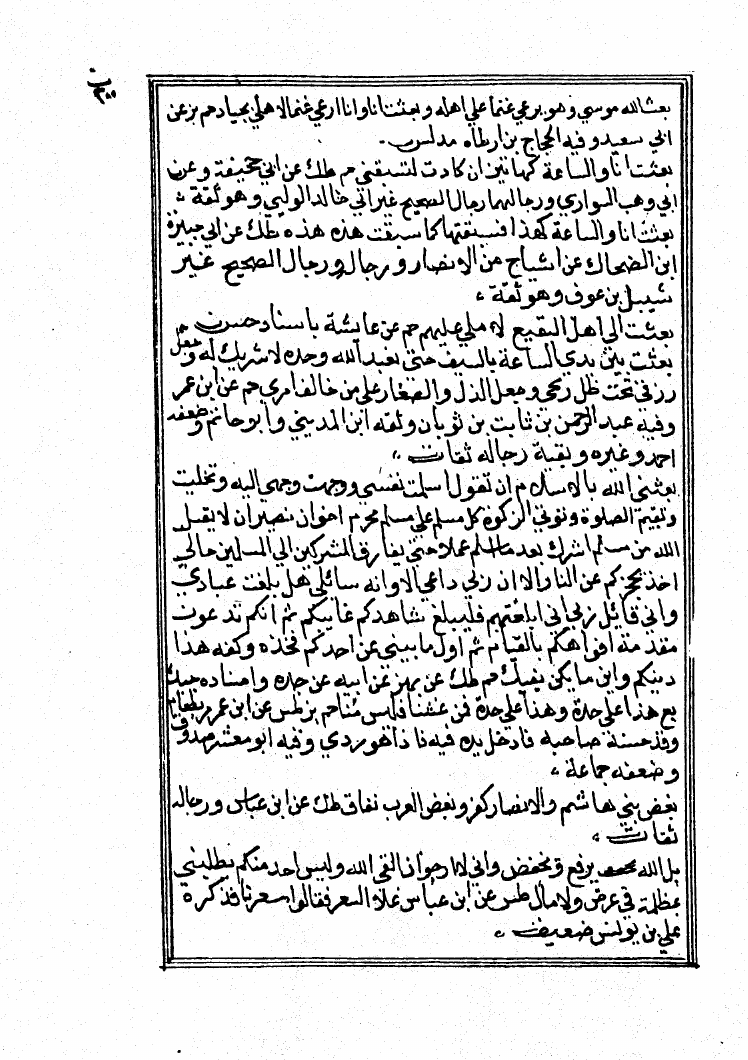 بعث الله موسى وهو يرعى غنما على اهله وبعثت انا وانا ارعى غنما لاهلي بجياد حم بز عن
ابي سعيد وفيه الحجاج بن ارطاه مدلس
بعثت انا والساعة كهاتين ان كادت لتسبقني حم طك عن ابي جحيفة وعن
ابي وهب السواري ورجالهما رجال الصحيح غير ابي خالد الوالبي وهو ثقة
بعثت انا والساعة كهذا فسبقتها كما سبقت هذه هذه طك عن ابي جبيرة
ابن الضحاك عن اشياخ من الانصار ورجال ورجال الصحيح غير
شبيل بن عوف وهو ثقة
بعثت الى اهل البقيع لاصلي عليهم حم عن عايشة باسناد حسن
بعثت بين يدي الساعة بالسيف حتى يعبد الله وحده لا شريك له وجعل
رزقي تحت ظل رمحي وجعل الذل والصغار على من خالف امري حم عن ابن عمر
وفيه عبد الرحمن بن ثابت بن ثوبان وثقه ابن المديني وابو حاتم وضعفه
احمد وغيره وبقية رجاله ثقات
بعثني الله بالاسلام ان تقول اسلمت نفسي ووجهت وجهي اليه وتخليت
وتقيم الصلوة وتوتي الزكوة كل مسلم على مسلم محرم اخوان نصيران لا يقبل
الله من مسلم اشرك بعد ما اسلم عملا حتى يفارق المشركين الى المسلمين مالي
اخذ بحجزكم عن النار الا ان ربي داعي الا وانه سائلي هل بلغت عبادي
واني قايل ربي اني ابلغتهم فليبلغ شاهدكم غايبكم ثم انكم تدعون
مقدمة افواهكم بالفدام ثم اول ما يبني عن احدكم فخذه وكفه هذا
دينكم واين ما يكن يفيك حم طك عن بهز عن ابيه عن جده واسناده جيد
بع هذا على حدة وهذا على حدة فمن غشنا فليس منا حم بز طس عن ابن عمر بطعام
وقد حسنه صاحبه فادخل يده فيه فاذا هو ردي وفيه ابو معشر صدوق
وضعفه جماعة
بغض بني هاشم والانصار كفر وبغض العرب نفاق طك عن ابن عباس ورجاله
ثقات
بل الله يرفع ويخفض واني لارجو ان القى الله وليس احد منكم يطلبني
بمظلمة في عرض ولا مال طس عن ابن عباس غلاء السعر فقالوا سعر لنا فذكره
علي بن يونس ضعيف